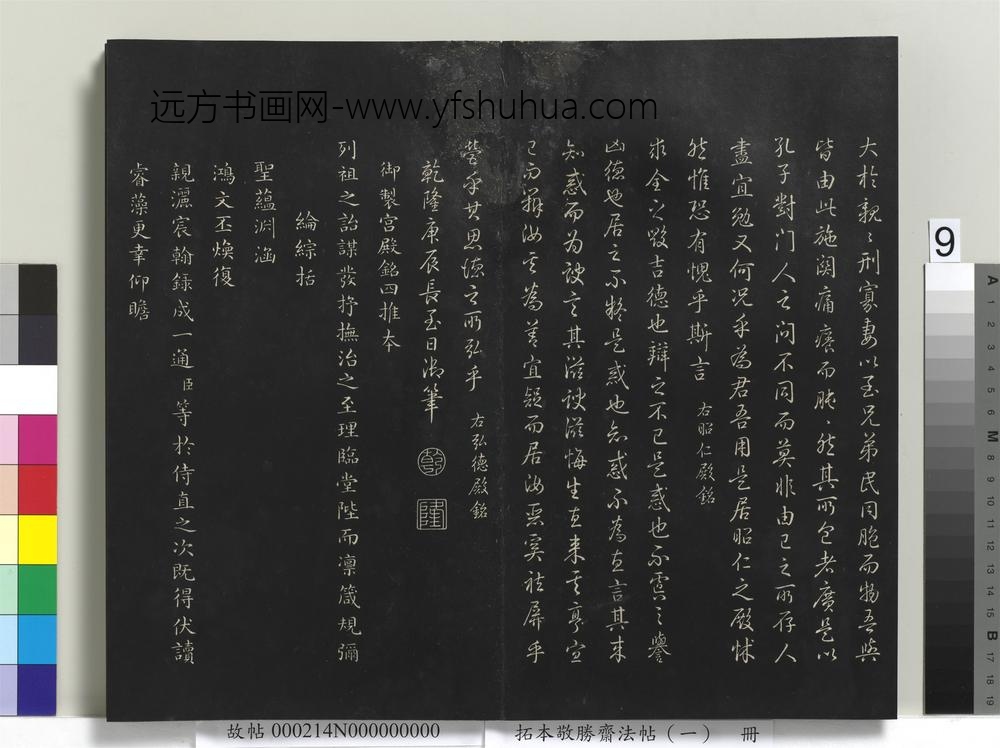 远方书画网-www.yfshuhua.com
大於親親刑寡妻以至兄弟民同胞而物吾與
皆由此施閎痛瘝而肫肫然其所包者廣是以
孔子對門人之问不同而莫非由己之所存人
盡宜勉又何況乎為君吾用是居昭仁之殿怵
然惟恐有愧乎斯言 右昭仁殿銘
求全之毀吉德也辯之不已是惑也不虞之譽
凶德也居之不疑是惑也知惑而為直言其来
知惑而为諛言其滋諛滋悔生直来其亨宜
己而辭汝其為善宜疑而居汝惡寞祛屏乎
營乎其思德之所弘乎 右弘德殿銘
乾隆庚辰長至日御筆
乾 隆
御製宮殿銘四推本
列祖之詒謀發抒撫治之至理臨堂陛而凛箴規彌
綸綜括
聖蘊淵涵
鴻文丕煥復
親灑宸翰録成一通臣等於侍直之次既得伏讀
睿藻更幸仰瞻
9
A 1 2 3 4 5 6 M 8 9 10 11 12 13 14 15 B 17 18 19
故帖 000214N000000000
拓本敬勝齋法帖（一） 冊